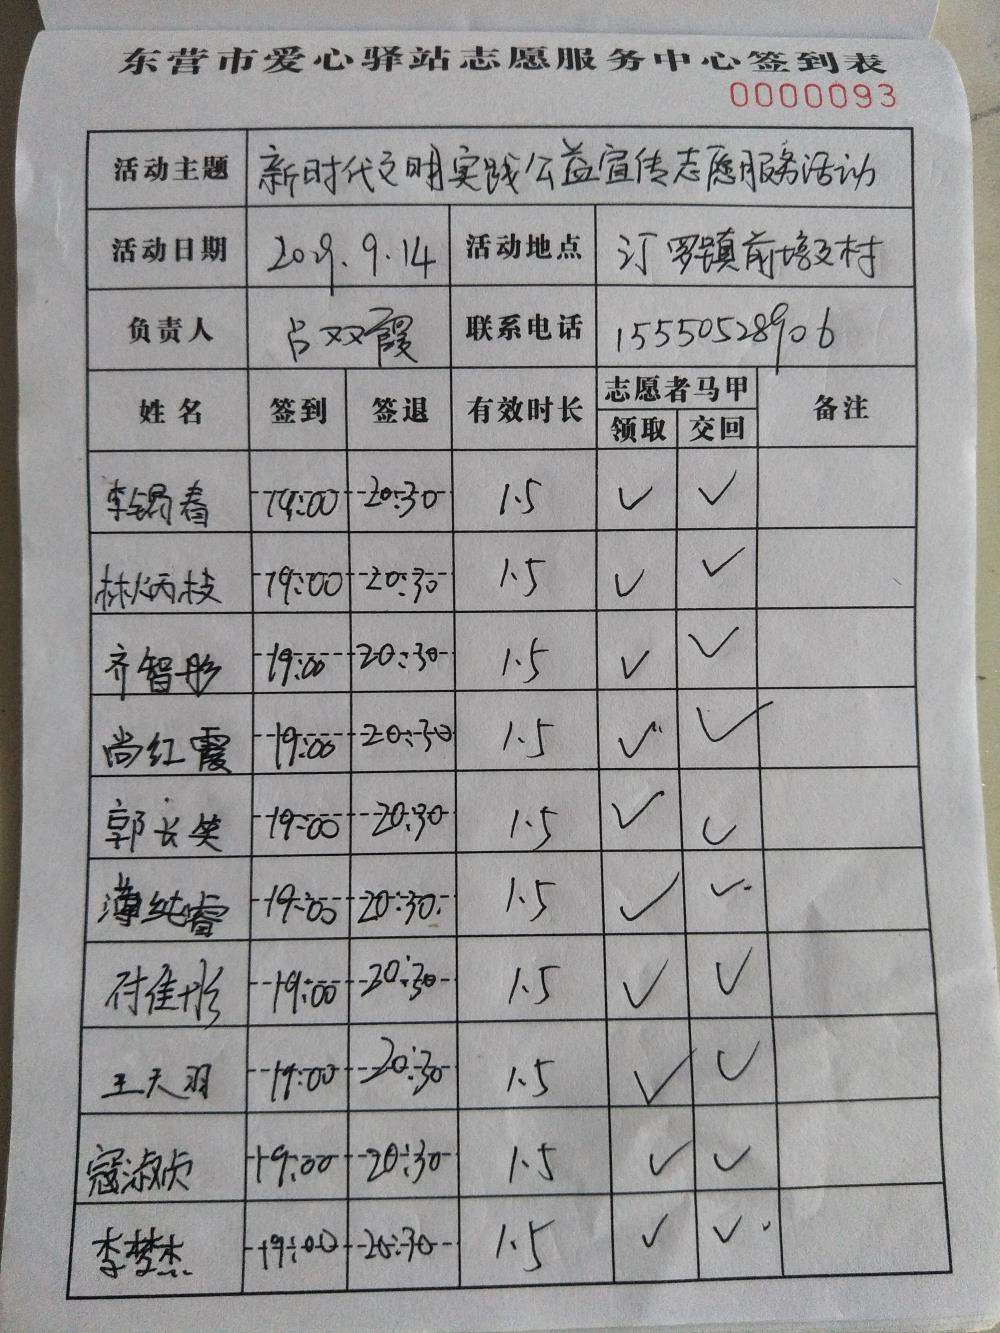 东营市爱心驿站志愿服务中心签到表
0000093
活动主题 新时代文明实践公益宣传志愿服务活动
活动日期 2019.9.14 活动地点 汀罗镇前培文村
负责人 吕双霞 联系电话 15550528906
姓名 签到 签退 有效时长 志愿者马甲 备注
领取 交回
李锡春 19:00 20:30 1.5 ✓ ✓
林炳枝 19:00 20:30 1.5 ✓ ✓
齐智彤 19:00 20:30 1.5 ✓ ✓
尚红霞 19:00 20:30 1.5 ✓ ✓
郭长英 19:00 20:30 1.5 ✓ ✓
薄纯睿 19:00 20:30 1.5 ✓ ✓
付佳彤 19:00 20:30 1.5 ✓ ✓
王天羽 19:00 20:30 1.5 ✓ ✓
寇淑贞 19:00 20:30 1.5 ✓ ✓
李梦杰 19:00 20:30 1.5 ✓ ✓